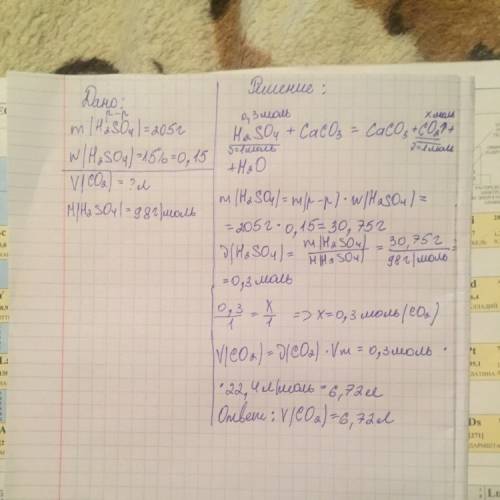 Дано:
р-р
m(H₂SO₄)=205г
W(H₂SO₄)=15%=0,15
V(CO₂)=?л
M(H₂SO₄)=98г/моль
Решение:
0,3моль x моль
H₂SO₄ + CaCO₃ = CaCO₃+CO₂↑+
ν=1моль ν=1моль
+H₂O
m(H₂SO₄)=m(р-р)·W(H₂SO₄)=
=205г·0,15=30,75г
ν(H₂SO₄)=m(H₂SO₄)/M(H₂SO₄)=30,75г/98г/моль=
=0,3моль
0,3/1=x/1 => x=0,3моль(CO₂)
V(CO₂)=ν(CO₂)·Vm=0,3моль·
·22,4л/моль=6,72л
Ответ: V(CO₂)=6,72л
Pt
Ds
[271]